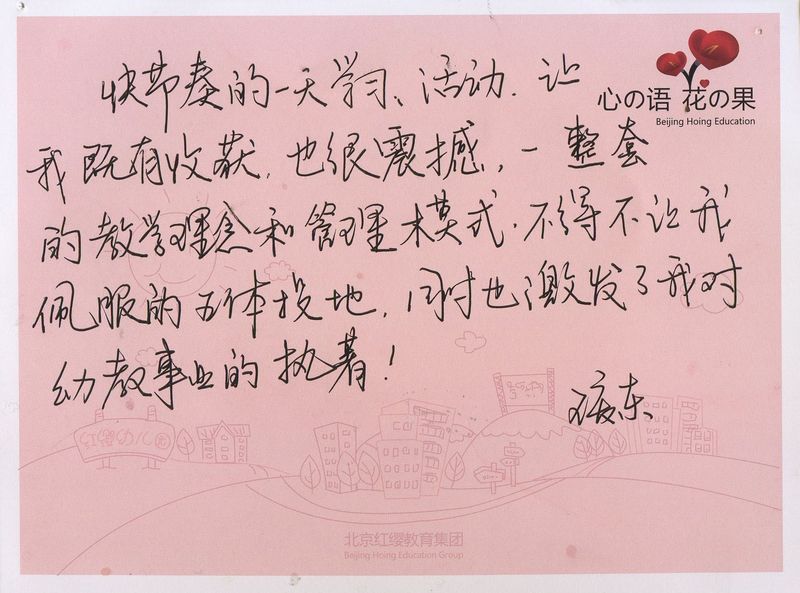 快节奏的一天学习、活动.让
心の语 花の果
Beijing Hoing Education
我既有收获,也很震撼,一整套
的教学理念和管理模式.不得不让我
佩服的五体投地,同时也激发了我对
幼教事业的执着!
红缨幼儿园
北京红缨教育集团
Beijing Hoing Education Group